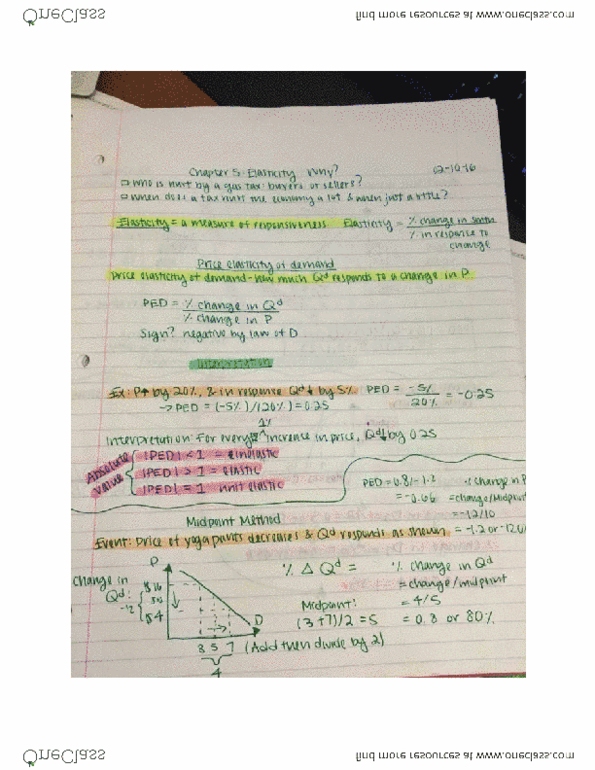 OneClass
find more resources at www.oneclass.com
Chapter 5: Elasticity Why?
12-10-16
Who is hurt by a gas tax: buyers or sellers?
When does a tax hurt the economy a lot & when just a little?
Elasticity = a measure of responsiveness
Elasticity = % change in
% in response to
change
Price elasticity of demand
Price elasticity of demand - how much Qd responds to a change in P
PED = % change in Qd
% change in P
Sign? negative by law of D
Interpretation
Ex: P↑ by 20%, & in response Qd↓ by 5%
PED = -5%
20%
= -0.25
→ PED = (-5%)/(20%) = 0.25
Interpretation: For every 1% increase in price, Qd↓ by 0.25
Absolute value
|PED| < 1 = inelastic
|PED| > 1 = elastic
|PED| = 1 unit elastic
PED = 0.8/-1.2
= -0.66
% change in P
= change/midpoint
= -12/10
= -1.2 or -120%
Midpoint Method
Event: Price of yoga pants decreases & Qd responds as shown
P
change in
Qd:
-12
$16
$4
D
3 5 7
4
% Δ Qd =
Midpoint:
(3+7)/2 = 5
(Add then divide by 2)
% change in Qd
= change/midpoint
= 4/5
= 0.8 or 80%
OneClass
find more resources at www.oneclass.com